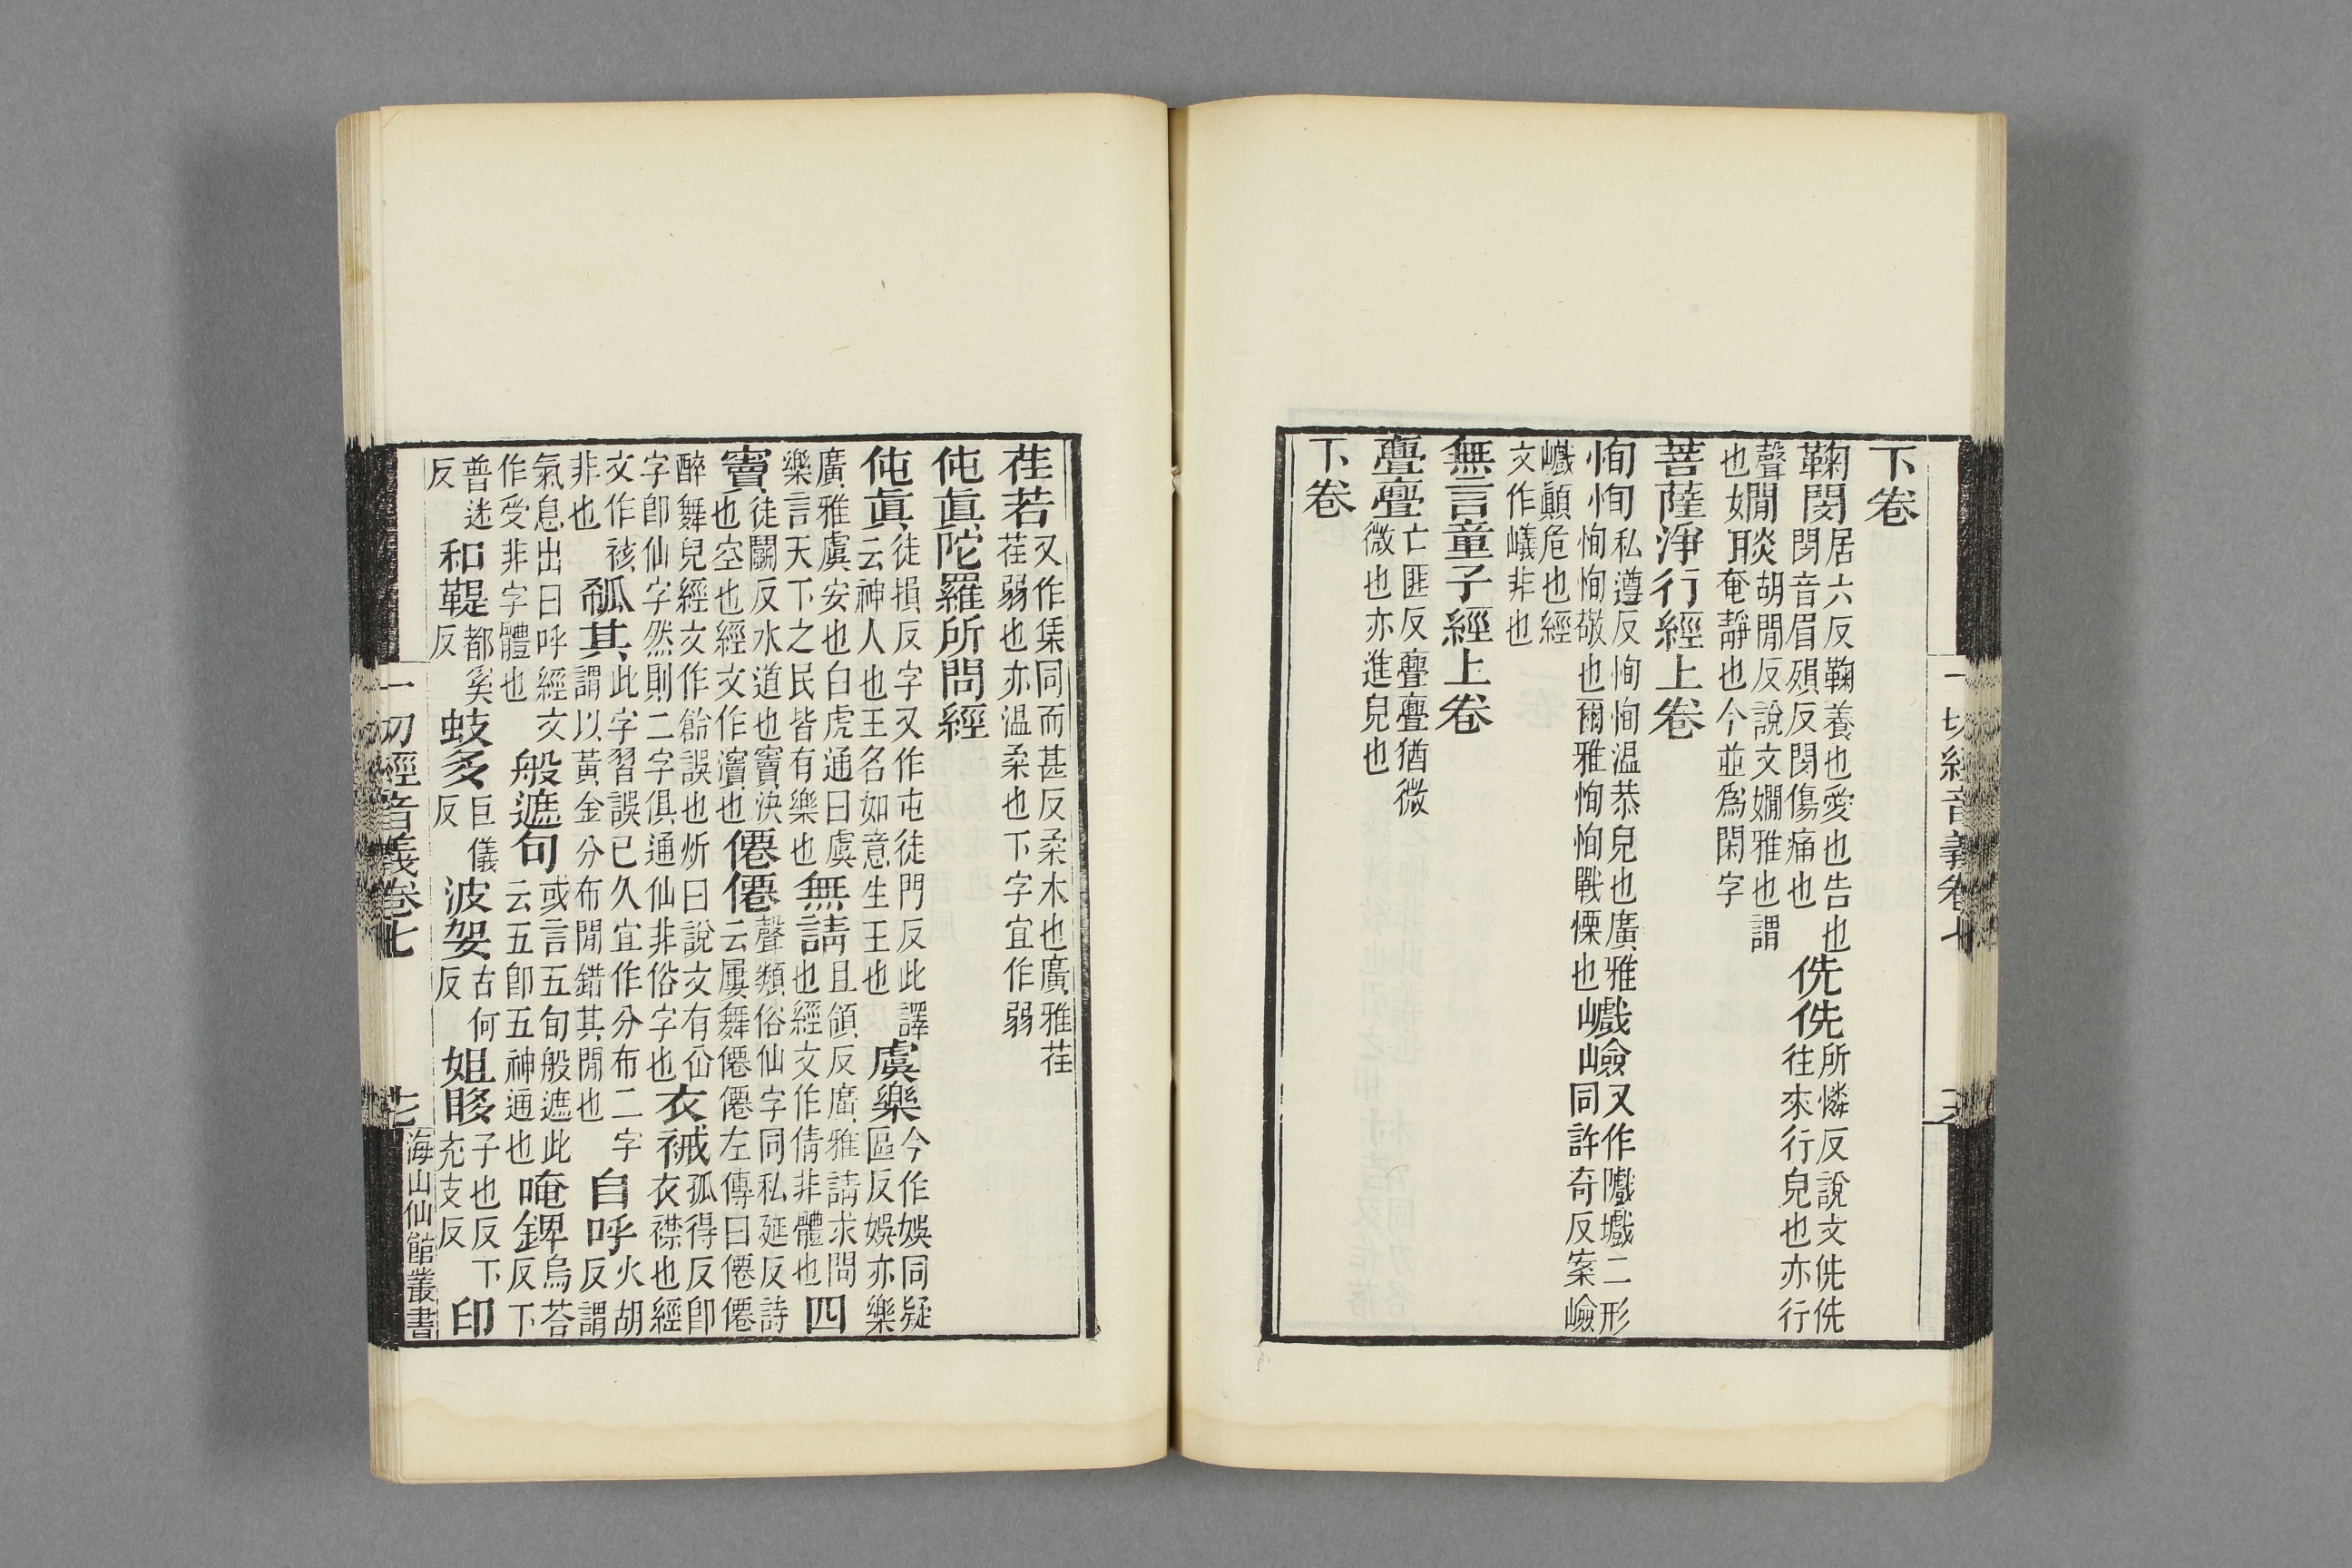 下卷
鞠閔居六反鞠養也愛也告也
閔音眉殞反閔傷痛也
侁侁所憐反說文侁侁
往來行皃也亦行
聲
也
嫺胡閒反說文嫺雅也謂
奄靜也今並爲閑字
菩薩淨行經上卷
恂恂私遵反恂恂温恭皃也廣雅
恂恂敬也爾雅恂恂戰慄也
巇嶮又作二形
同許奇反案嶮
巇顛危也經
文作㠖非也
無言童子經上卷
亹亹亡匪反亹亹猶微
微也亦進皃也
下卷
一切經音義卷七
荏若又作同而甚反柔木也廣雅荏
荏弱也亦温柔也下字宜作弱
伅眞陀羅所問經
伅眞徒損反字又作屯徒門反此譯
云神人也王名如意生王也
虞樂今作娛同疑
區反娛亦樂
廣雅虞安也白虎通曰虞
樂言天下之民皆有樂也
無請且領反廣雅請求問
也經文作倩非體也
四
竇徒鬬反水道也竇決
也空也經文作瀆也
僊僊聲類俗仙字同私延反詩
云屢舞僊僊左傳曰僊僊
醉舞皃經文作飴誤也炘曰說文有仚
字卽仙字然則二字俱通仙非俗字也
衣祴孤得反卽
衣襟也經
文作祾
非也
瓠其此字習誤已久宜作分布二字
謂以黃金分布閒錯其閒也
自呼火胡
反謂
氣息出曰呼經文
作受非字體也
般遮句或言五旬般遮此
云五卽五神通也
唵錍烏荅
反下
普迷
反
和鞮都奚
反
蚑多巨儀
反
波袈古何
反
姐眵子也反下
充支反
印
一切經音義卷七
海山仙館叢書